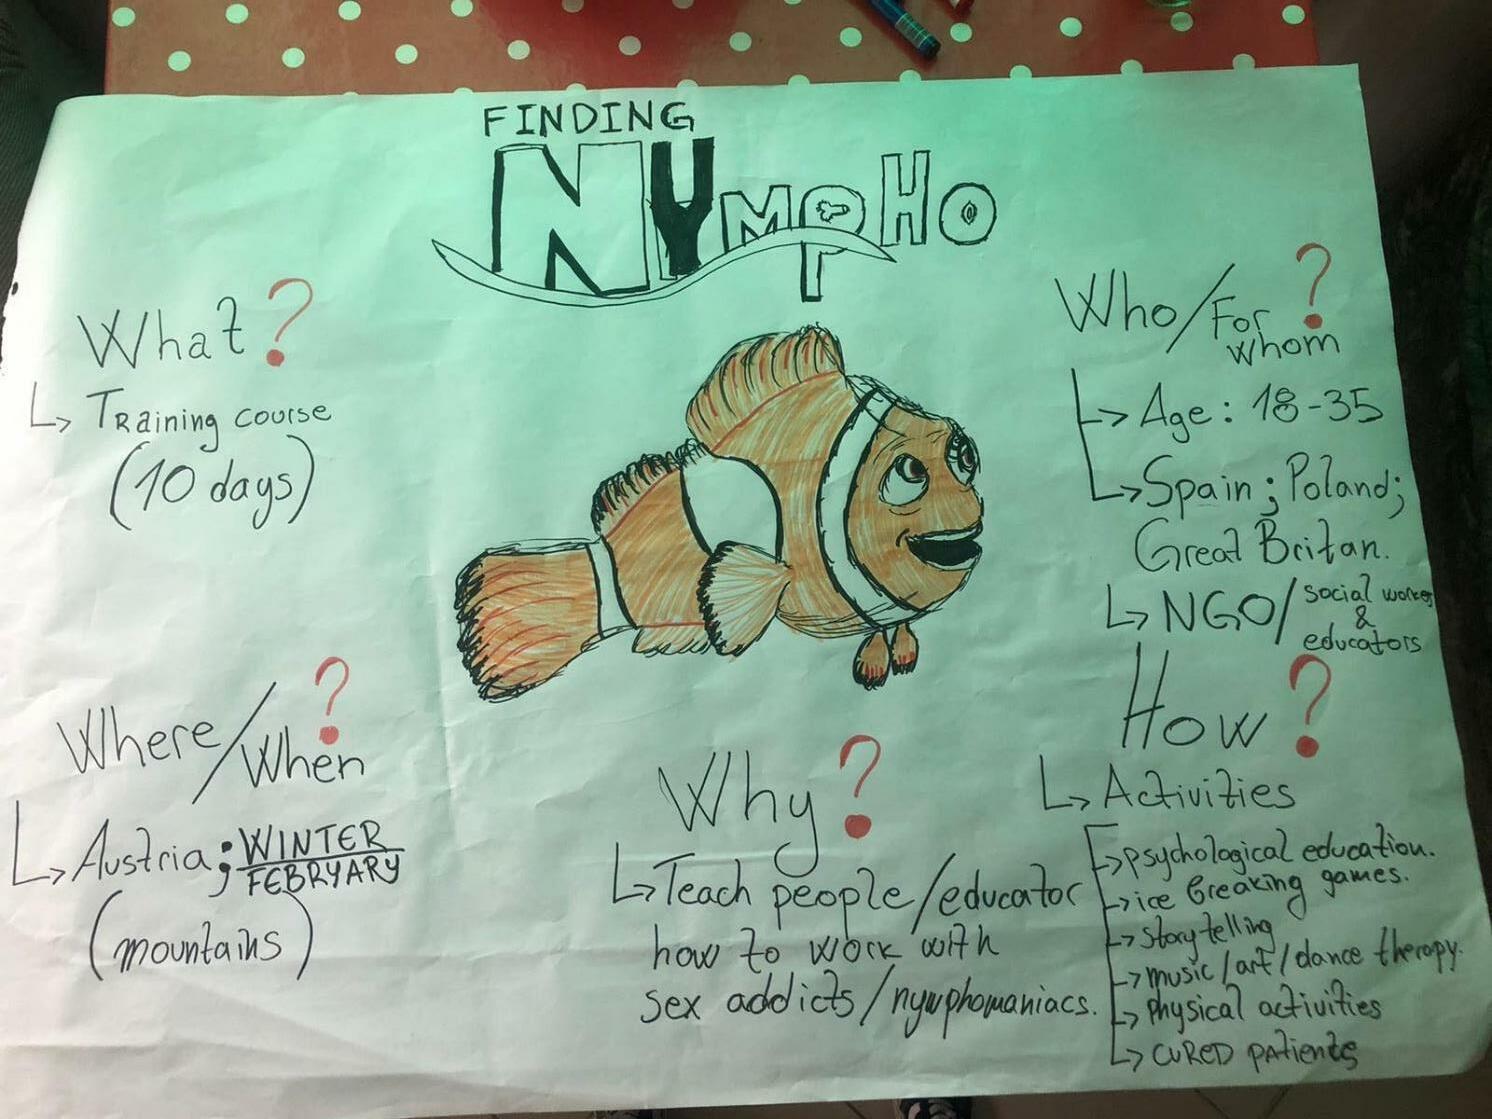 FINDING
NYMPHO
What?
Training course
(10 days)
Where/When?
Austria; WINTER
FEBRYARY
(mountains)
Why?
Teach people/educator
how to work with
sex addicts/nymphomaniacs.
Who/For whom?
Age: 18-35
Spain; Poland;
Great Britan.
NGO/social worker
&
educators
How?
Activities
psychological education.
ice breaking games.
storytelling
music/art/dance therapy.
physical activities
CURED patients